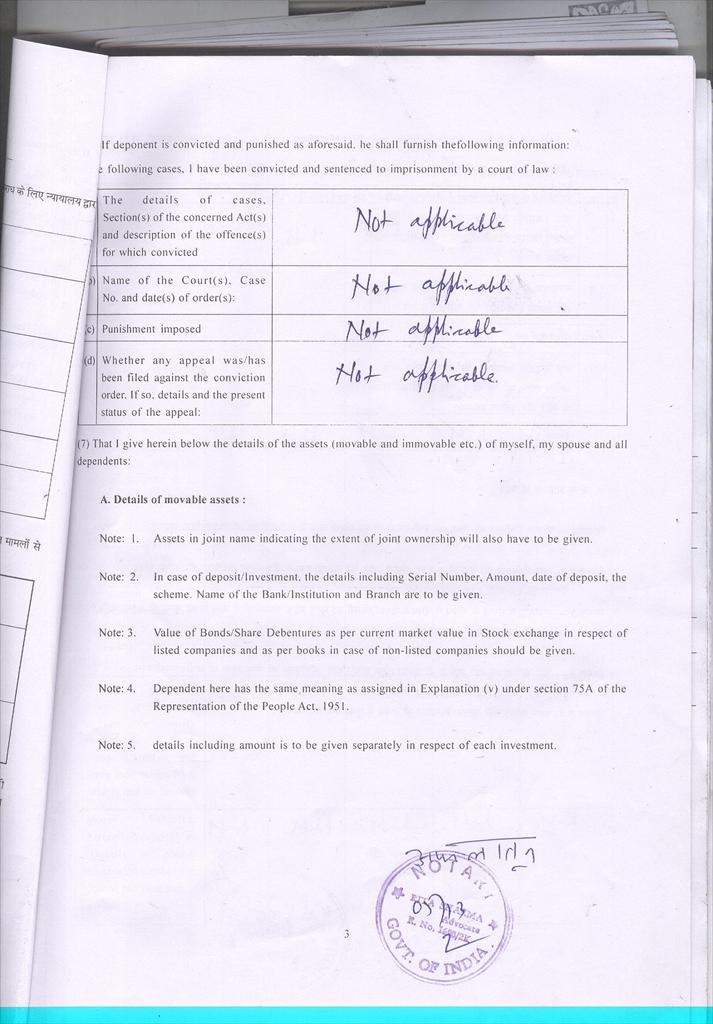 If deponent is convicted and punished as aforesaid, he shall furnish thefollowing information:
following cases, I have been convicted and sentenced to imprisonment by a court of law :
के लिए न्यायालय द्वार
The details of cases, Not applicable
Section(s) of the concerned Act(s)
and description of the offence(s)
for which convicted
Name of the Court(s), Case Not applicable
No. and date(s) of order(s):
(c) Punishment imposed Not applicable
(d) Whether any appeal was/has Not applicable.
been filed against the conviction
order. If so, details and the present
status of the appeal:
(7) That I give herein below the details of the assets (movable and immovable etc.) of myself, my spouse and all
dependents:
A. Details of movable assets :
मामलों से
Note: 1. Assets in joint name indicating the extent of joint ownership will also have to be given.
Note: 2. In case of deposit/Investment, the details including Serial Number, Amount, date of deposit, the
scheme, Name of the Bank/Institution and Branch are to be given.
Note: 3. Value of Bonds/Share Debentures as per current market value in Stock exchange in respect of
listed companies and as per books in case of non-listed companies should be given.
Note: 4. Dependent here has the same meaning as assigned in Explanation (v) under section 75A of the
Representation of the People Act, 1951.
Note: 5. details including amount is to be given separately in respect of each investment.
NOTARY
Advocate
R. No.
GOVT. OF INDIA
3